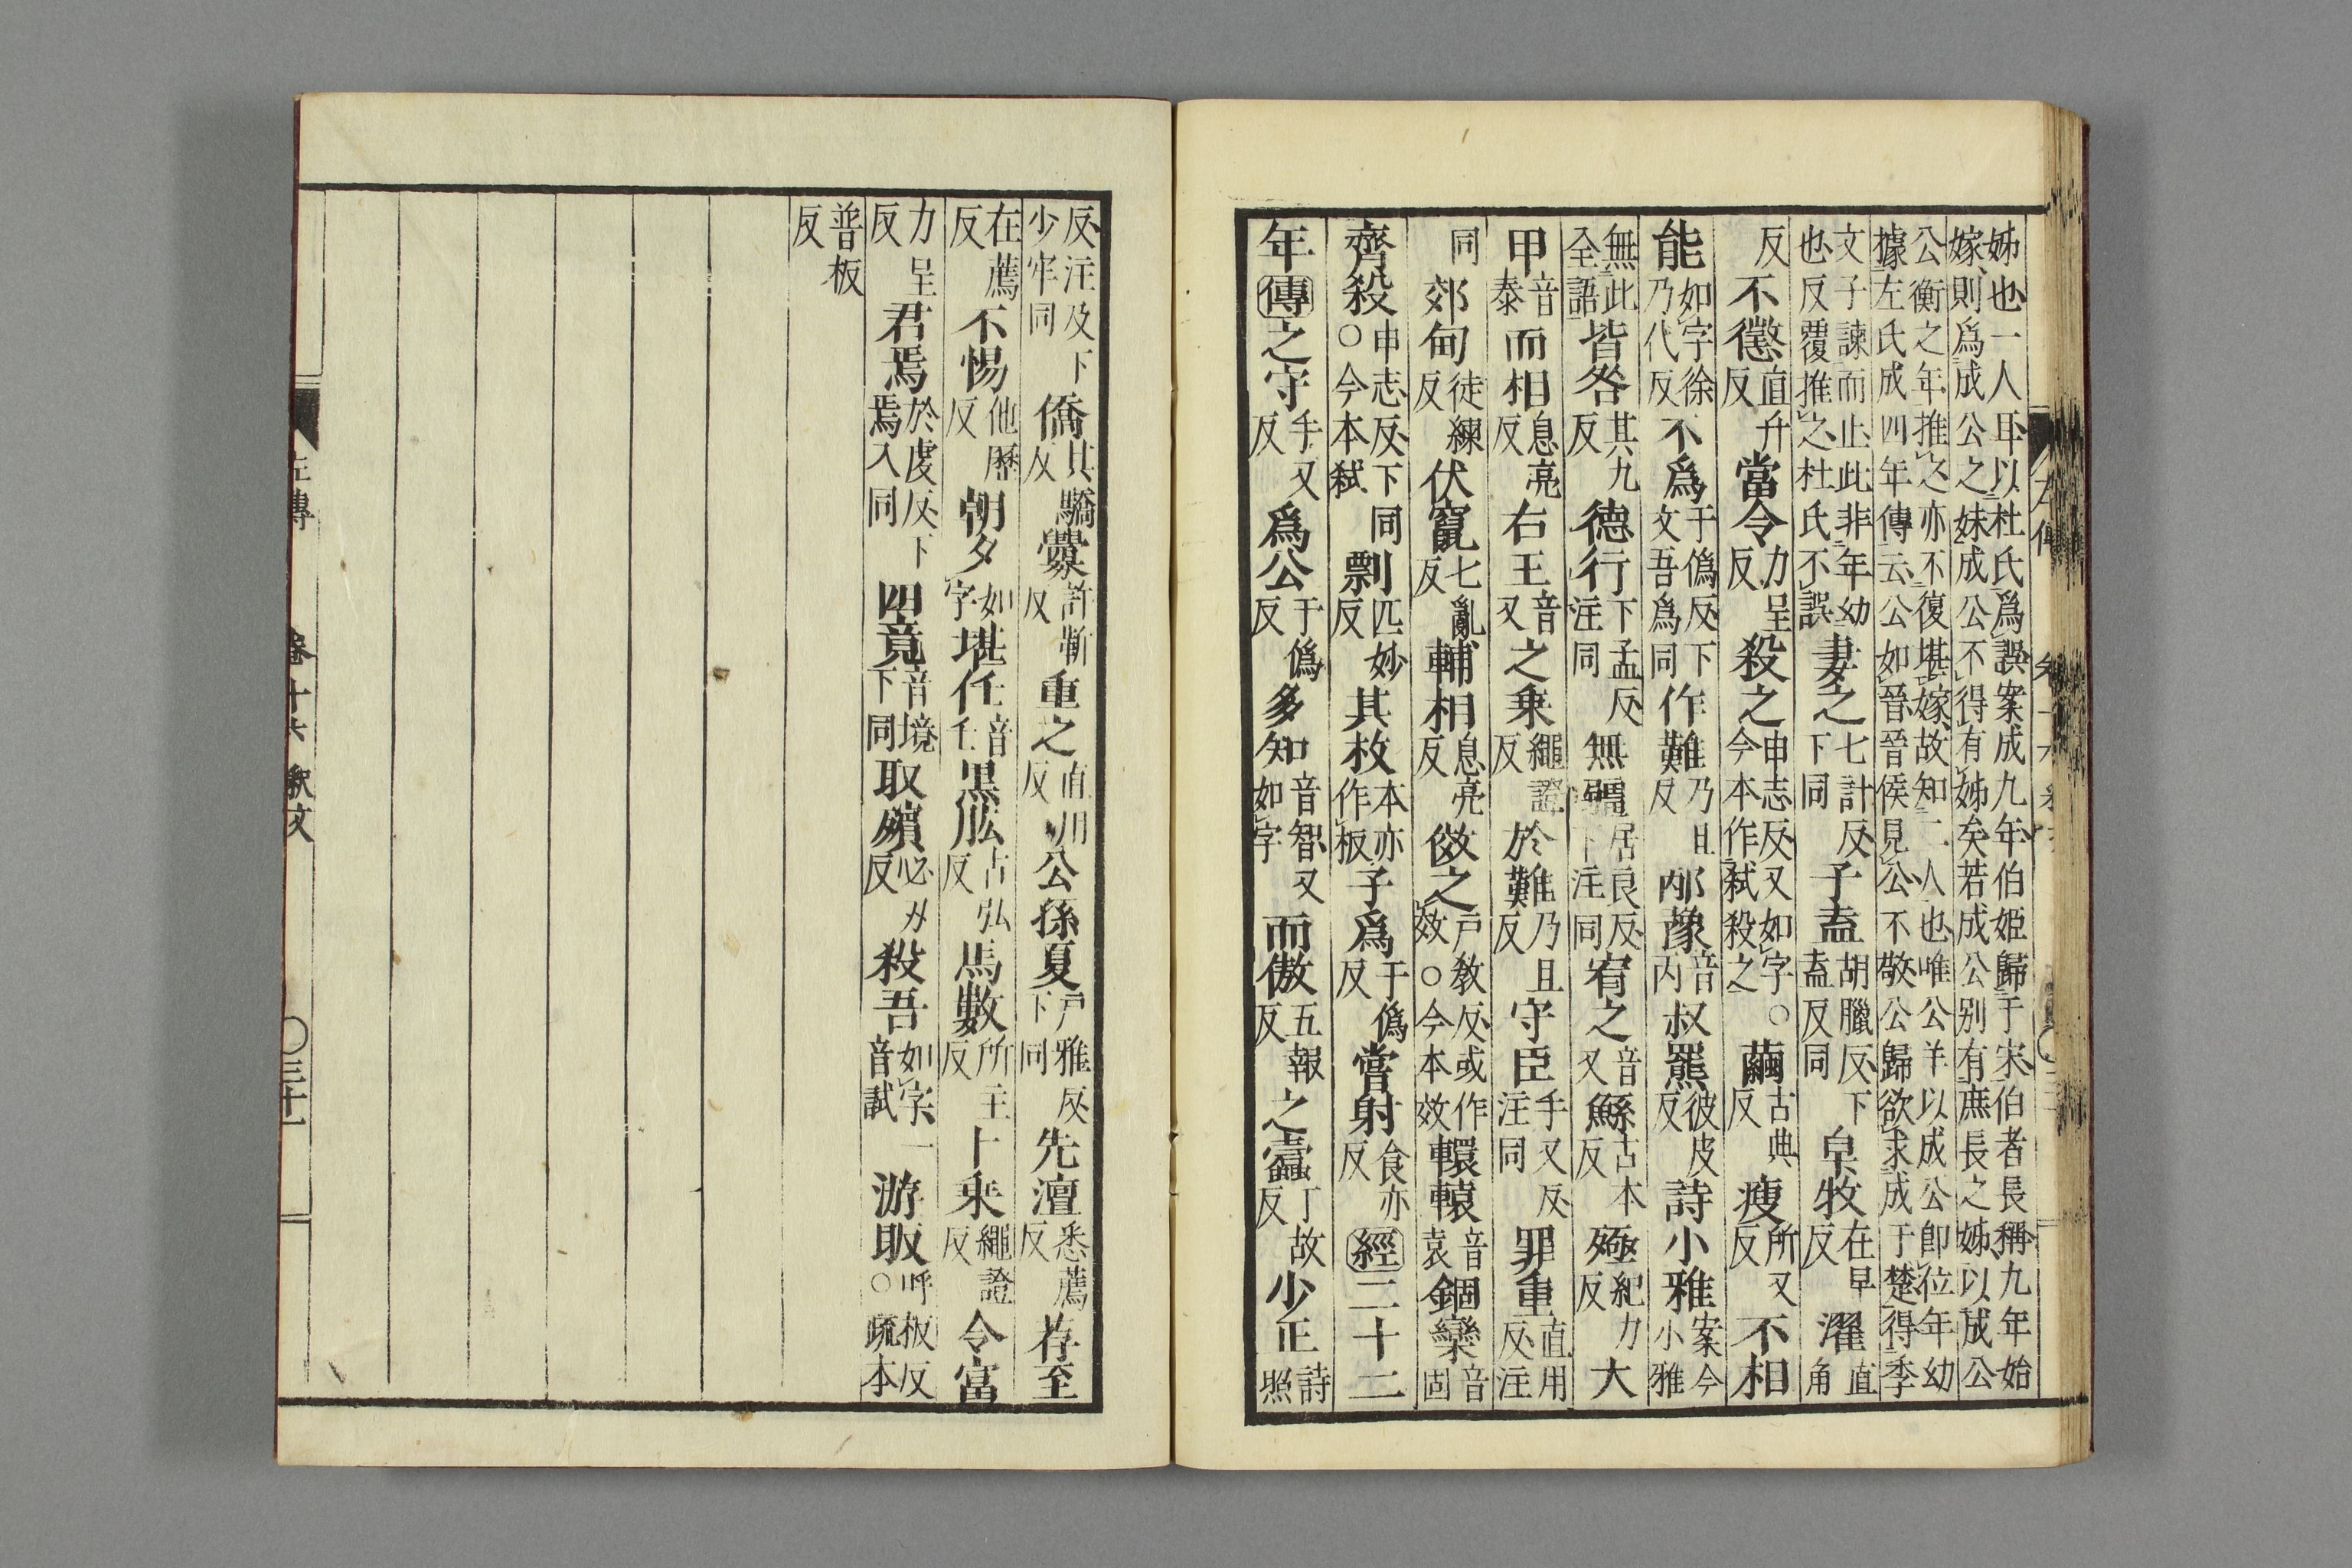 姊也一人耳以杜氏爲誤案成九年伯姬歸于宋伯者長稱九年始
嫁則爲成公之妹成公不得有姊矣若成公別有庶長之姊以成公
公衡之年推之亦不復堪嫁故知二人也唯公羊以成公卽位年幼
據左氏成四年傳云公如晉晉侯見公不敬公歸欲求成于楚得季
文子諫而止此非年幼
也反覆推之杜氏不誤
妻之七計反
下同
子盍胡臘反下
盍反同
皁牧在早
反
濯直
角
反
不懲直升
反
當令力呈
反
殺之申志反又如字○
今本作弒殺之
繭古典
反
瘦所又
反
不相
能如字徐
乃代反
不爲于僞反下
文吾爲同
作難乃旦
反
邴豫音
丙
叔羆彼皮
反
詩小雅案今
小雅
無此
全語
皆咎其九
反
德行下孟反
注同
無疆居良反
下注同
宥之音
又
鯀古本
反
殛紀力
反
大
甲音
泰
而相息亮
反
右王音
又
之乘繩證
反
於難乃旦
反
守臣手又反
注同
罪重直用
反注
同
郊甸徒練
反
伏竄七亂
反
輔相息亮
反
傚之戶敎反或作
效○今本效
轘轅音
袁
錮欒音
固
齊殺申志反下同
○今本弒
剽匹妙
反
其枚本亦
作板
子爲于僞
反
嘗射食亦
反
經二十二
年傳之守手又
反
爲公于僞
反
多知音智又
如字
而傲五報
反
之蠹丁故
反
少正詩
照
反注及下
少牢同
僑其驕
反
釁許靳
反
重之直用
反
公孫夏戶雅反
下同
先澶悉薦
反
荐至
在薦
反
不惕他歷
反
朝夕如
字
堪任音
壬
黑肱古弘
反
馬數所主
反
十乘繩證
反
令富
力呈
反
君焉於虔反下
焉入同
四竟音境
下同
取殯必刃
反
殺吾如字一
音試
游眅呼板反
○疏本
普板
反
左傳 卷十六 釈文 ○三十一